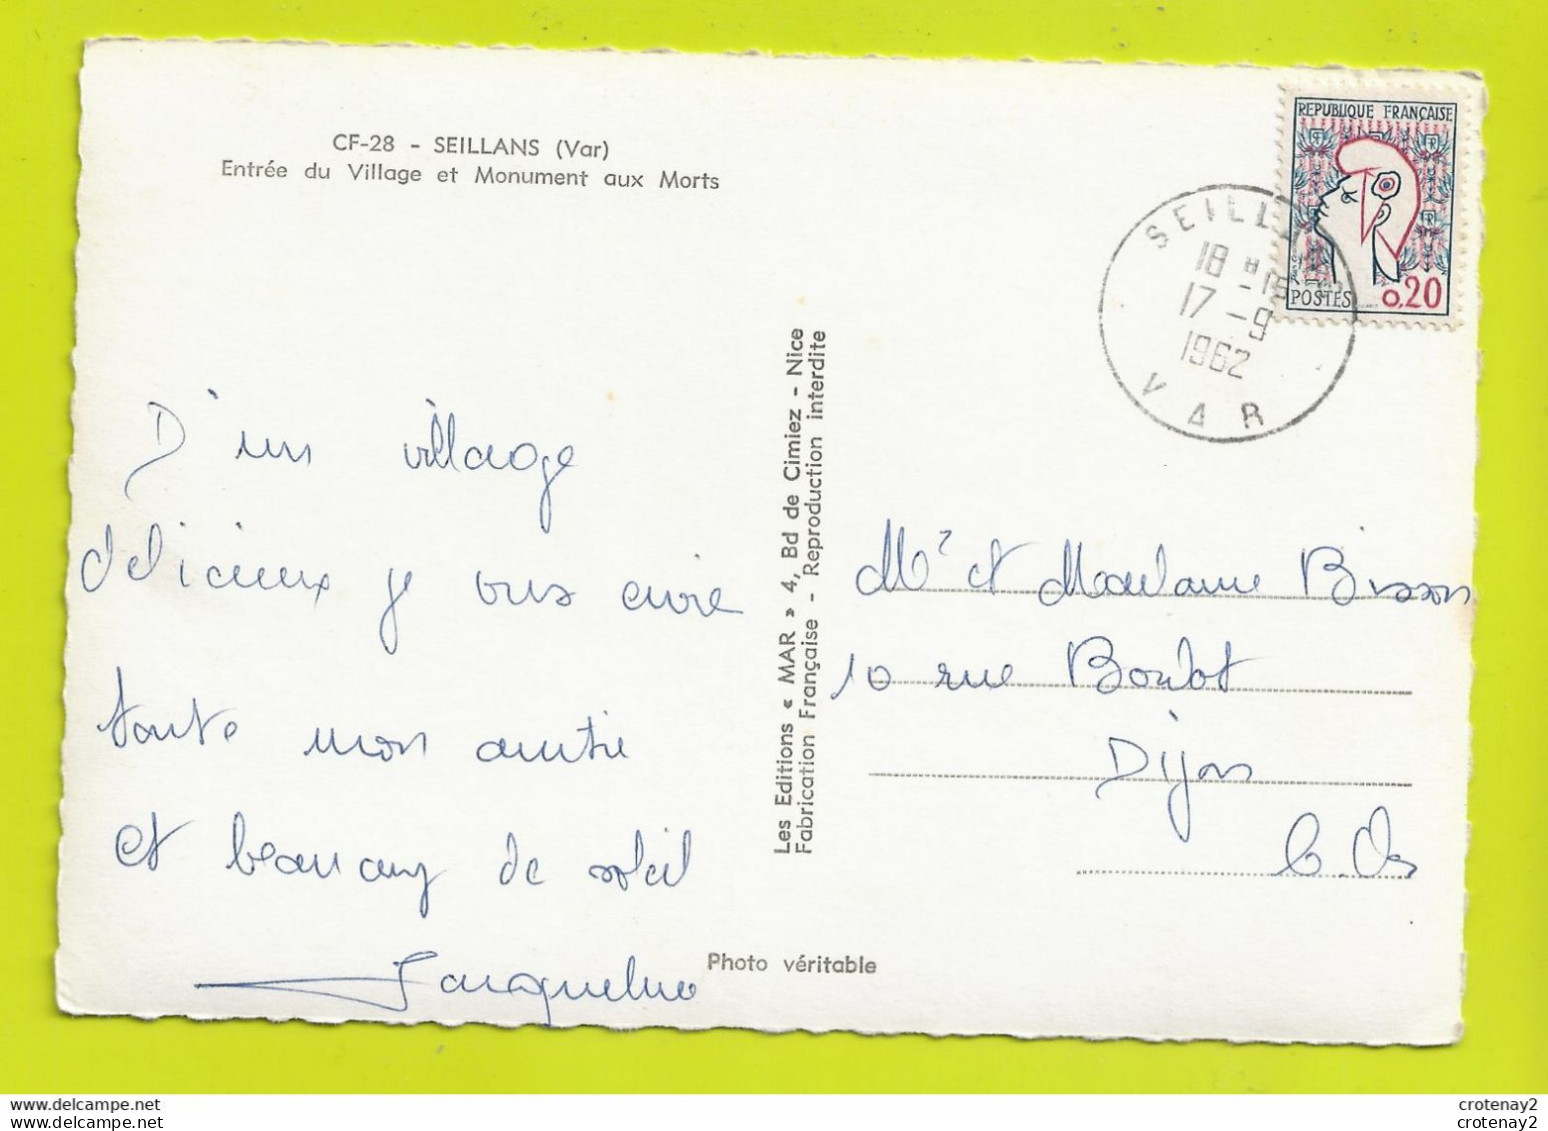 CF-28 - SEILLANS (Var)
Entrée du Village et Monument aux Morts
REPUBLIQUE FRANÇAISE
POSTES
0,20
SEILLANS
18 H 15
17 - 9
1962
VAR
D'un village
delicieux je vous envoie
toute mon amitié
et beaucoup de soleil
Jacqueline
Les Editions « MAR » 4, Bd de Cimiez - Nice
Fabrication Française - Reproduction interdite
Photo véritable
Mr et Madame Bisson
10 rue Boulot
Dijon
C. Or
delcampe.net
crotenay2
crotenay2